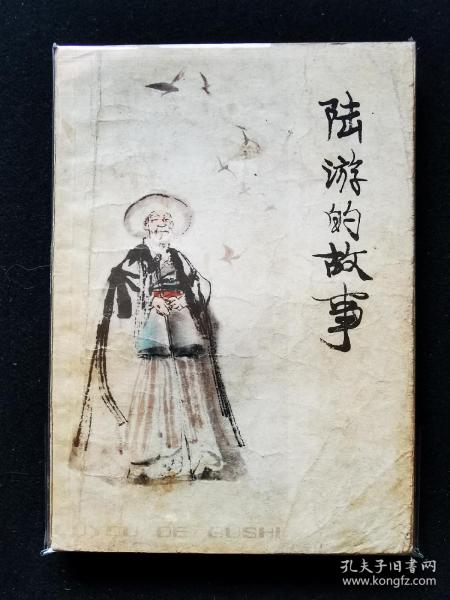 陆游的故事
LUYOU DE GUSHI
孔夫子旧书网
www.kongfz.com